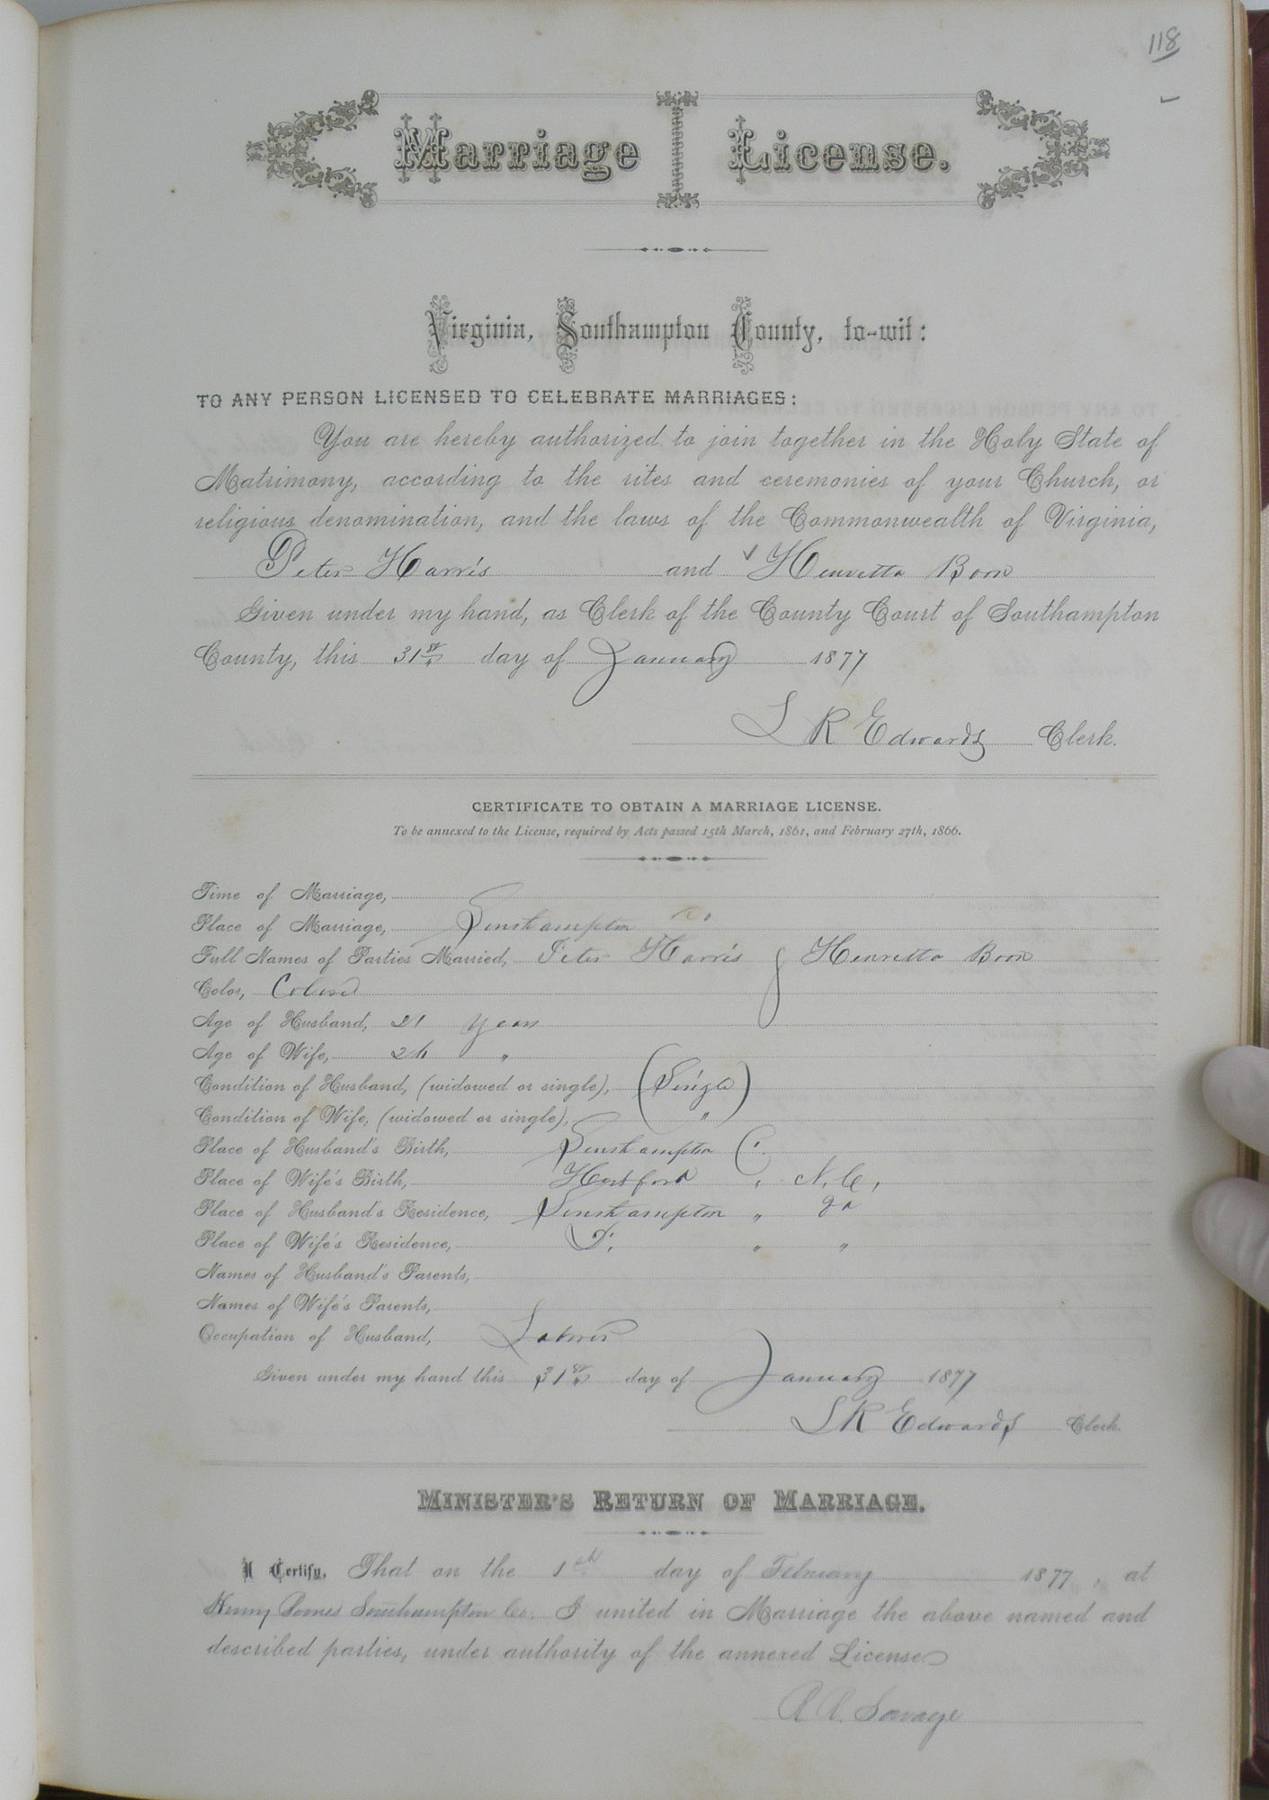 118
Marriage License.
Virginia, Southampton County, to-wit:
TO ANY PERSON LICENSED TO CELEBRATE MARRIAGES:
You are hereby authorized to join together in the Holy State of
Matrimony, according to the rites and ceremonies of your Church, or
religious denomination, and the laws of the Commonwealth of Virginia,
Peter Harris and Henrietta Boon
Given under my hand, as Clerk of the County Court of Southampton
County, this 31st day of January 1877
L R Edwards Clerk.
CERTIFICATE TO OBTAIN A MARRIAGE LICENSE.
To be annexed to the License, required by Acts passed 15th March, 1861, and February 27th, 1866.
Time of Marriage,
Place of Marriage, Southampton Co
Full Names of Parties Married, Peter Harris & Henrietta Boon
Color, Colored
Age of Husband, 21 years
Age of Wife, "
Condition of Husband, (widowed or single), (Single)
Condition of Wife, (widowed or single), "
Place of Husband's Birth, Southampton C.
Place of Wife's Birth, Hertford " N.C.,
Place of Husband's Residence, Southampton " Va
Place of Wife's Residence, " "
Names of Husband's Parents,
Names of Wife's Parents,
Occupation of Husband, Laborer
Given under my hand this 31st day of January 1877
L R Edwards Clerk.
MINISTER'S RETURN OF MARRIAGE.
I Certify, That on the 1st day of February 1877, at
Henry Southampton Co. I united in Marriage the above named and
described parties, under authority of the annexed License
Savage